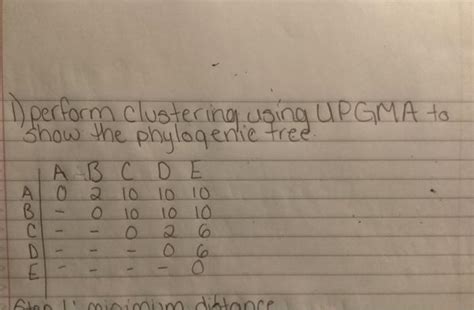 1) perform clustering using UPGMA to
show the phylogenetic tree.
A B C D E
A 0 2 10 10 10
B - 0 10 10 10
C - - 0 2 6
D - - - 0 6
E - - - - 0
Step 1: minimum distance